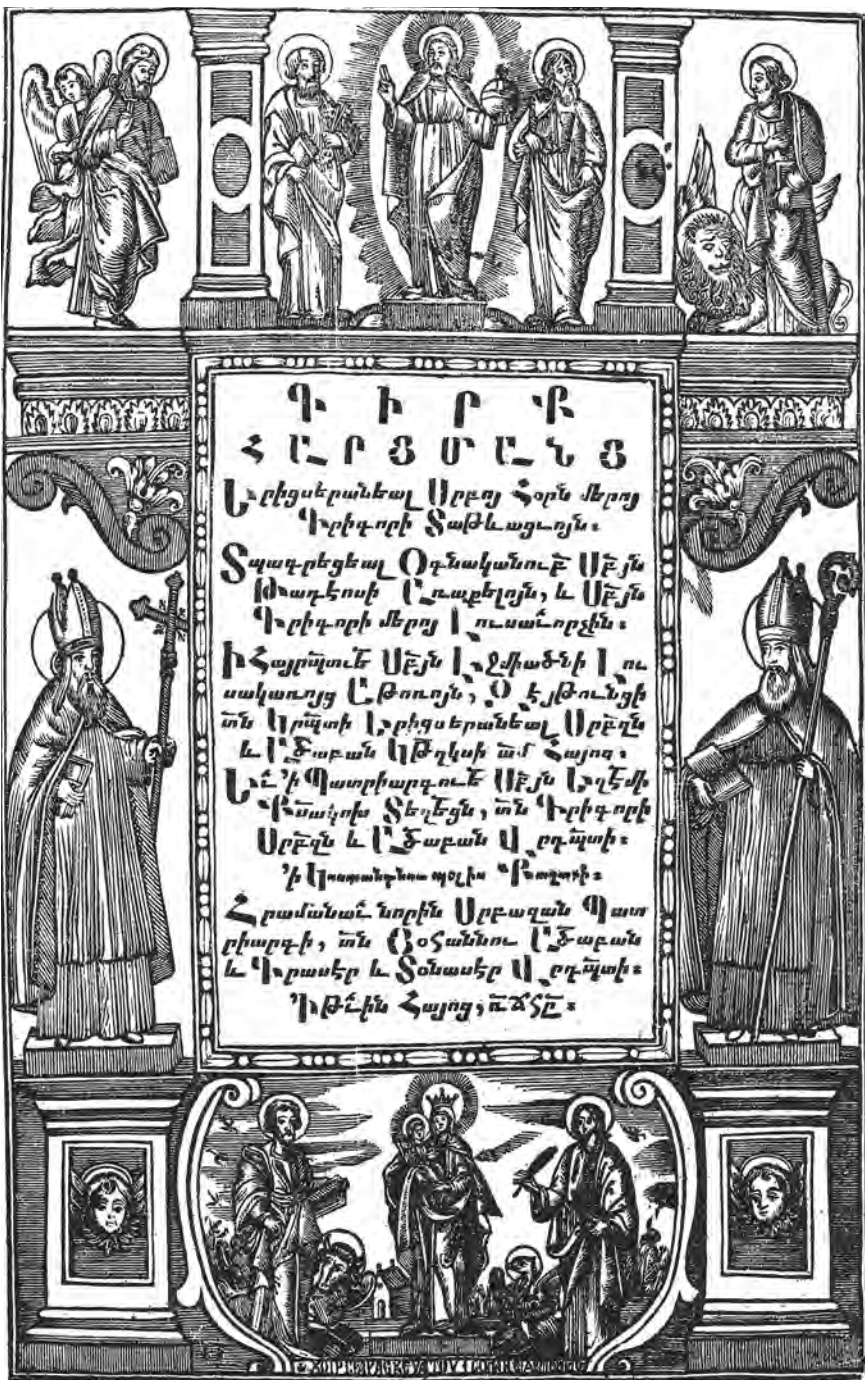 ԳԻՐՔ
ՀԱՐՑՄԱՆՑ
Երիցսերանեալ Սրբոյ Հօրն մերոյ
Գրիգորի Տաթևացւոյն։
Տպագրեցեալ Օգնականութբ Սբյն
Թադէոսի Առաքելոյն, և Սբյն
Գրիգորի մերոյ Լուսաւորչին։
Ի Հայրպտութե Սբյն Էջմիածնի Լու
սակառոյց Աթոռոյն,
տն Երիցսերանեալ Սրբզն
և Աստուածաբան Կթղկսի ամ Հայոց։
Եւ ՚ի Պատրիարգութե Սբյն Եղէմի
տն Գրիգորի
Սրբզն և Ածաբան Վրդպտի։
՚ի Կոստանդնուպօլիս Քաղաքի։
Հրամանաւ նորին Սրբազան Պատ
րիարգի, տն Յօհաննու Ածաբան
և Գրասէր և Տօնասէր Վրդպտի։
Ի Թւին Հայոց, ՌՃՀԸ։